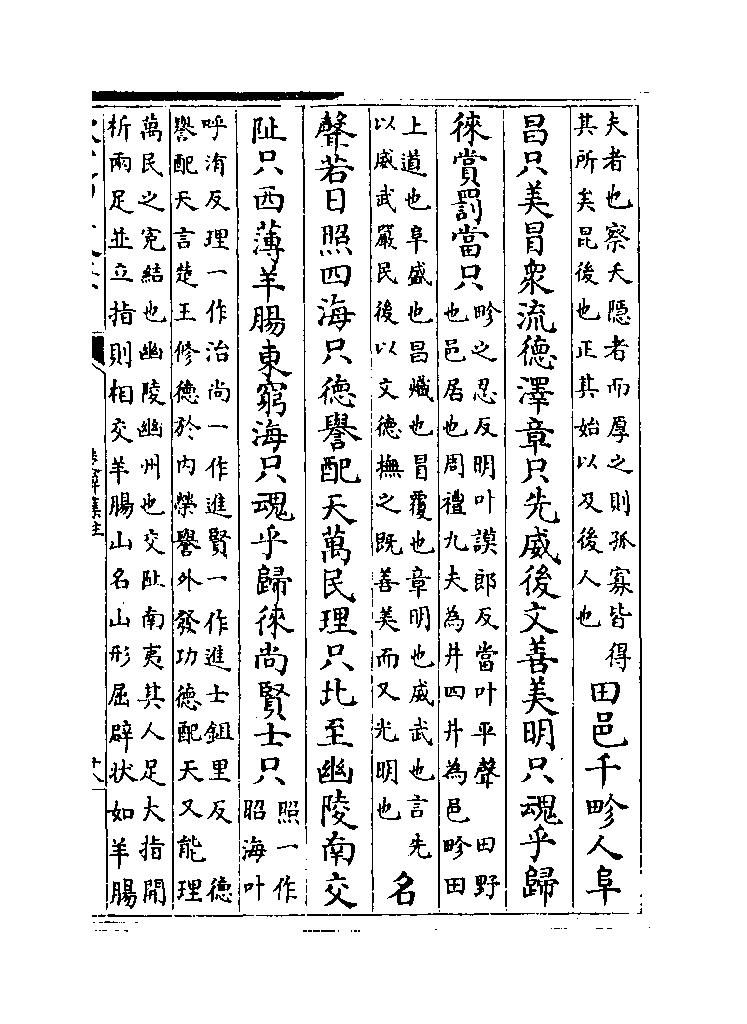 夫者也察夭隱者而厚之則孤寡皆得
其所矣昆後也正其始以及後人也
田邑千畛人阜
昌只美冒衆流德澤章只先威後文善美明只魂乎歸
徠賞罰當只
畛之忍反明叶謨郎反當叶平聲 田野
也邑居也周禮九夫為井四井為邑畛田
上道也阜盛也昌熾也冒覆也章明也威武也言先
以威武嚴民後以文德撫之既善美而又光明也
名
聲若日照四海只德譽配天萬民理只北至幽陵南交
阯只西薄羊腸東窮海只魂乎歸徠尚賢士只
照一作
昭海叶
呼洧反理一作治尚一作進賢一作進士鉏里反 德
譽配天言楚王修德於內榮譽外發功德配天又能理
萬民之冤結也幽陵幽州也交阯南夷其人足大指開
析兩足並立指則相交羊腸山名山形屈辟状如羊腸